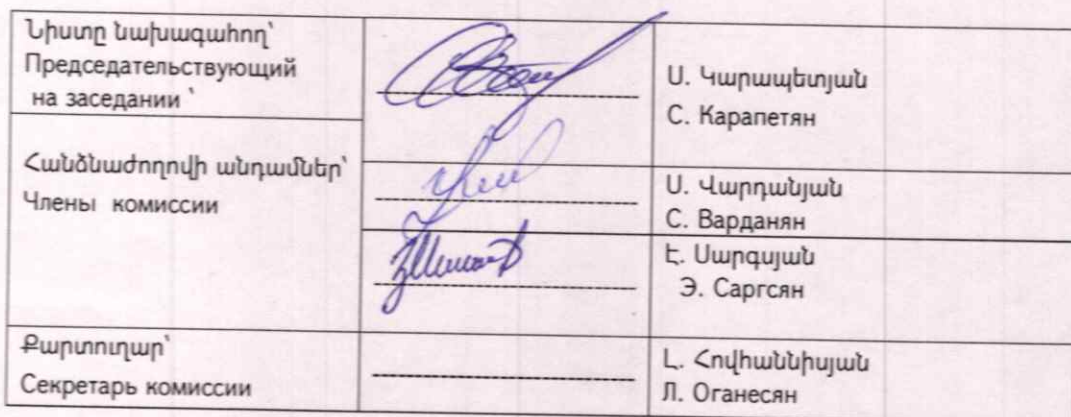 Նիստը նախագահող՝
Председательствующий
на заседании ՝
Ս. Կարապետյան
С. Карапетян
Հանձնաժողովի անդամներ՝
Члены комиссии
Ս. Վարդանյան
С. Варданян
Է. Սարգսյան
Э. Саргсян
Քարտուղար՝
Секретарь комиссии
Լ. Հովհաննիսյան
Л. Оганесян